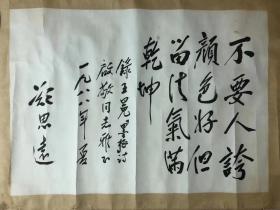 不要人誇
顏色好但
留清氣滿
乾坤
錄王冕墨梅詩
啟敬同志雅正
一九八八年夏
鄭思遠